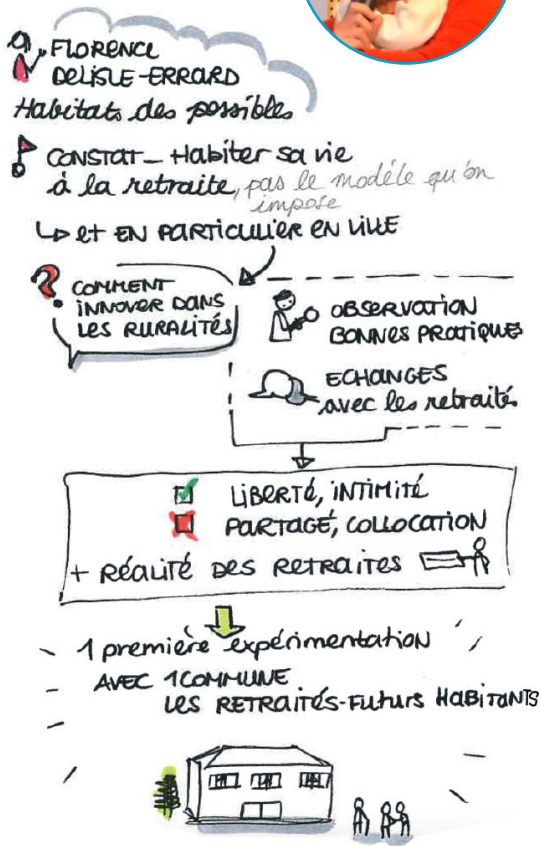 FLORENCE
DELISLE-ERRARD
Habitats des possibles
CONSTAT_ Habiter sa vie
à la retraite, pas le modèle qu'on
impose
↳ et EN PARTICULIER EN VILLE
? COMMENT
INNOVER DANS
LES RURALITÉS
OBSERVATION
BONNES PRATIQUES
ECHANGES
avec les retraités
LIBERTÉ, INTIMITÉ
PARTAGÉ, COLLOCATION
+ RÉALITÉ DES RETRAITES
1 première expérimentation
AVEC 1 COMMUNE
LES RETRAITÉS-FUTURS HABITANTS